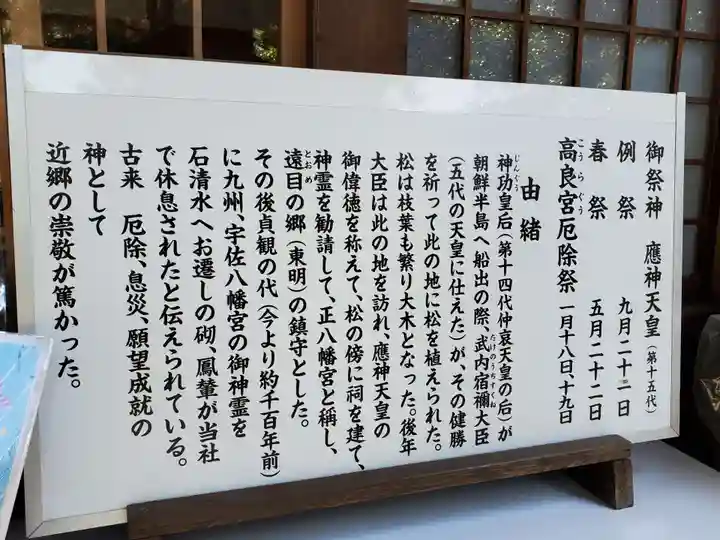 御祭神　應神天皇（第十五代）
例祭　九月二十二日
春祭　五月二十二日
高良宮厄除祭　一月十八日、十九日
こうらぐう
由緒
神功皇后（第十四代仲哀天皇の后）が
じんぐう
朝鮮半島へ船出の際、武内宿禰大臣
たけのうちすくね
（五代の天皇に仕えた）が、その健勝
を祈って此の地に松を植えられた。
松は枝葉も繁り大木となった。後年
大臣は此の地を訪れ、應神天皇の
御偉徳を称えて、松の傍に祠を建て、
神霊を勧請して、正八幡宮と称し、
遠目の郷（東明）の鎮守とした。
とおめ
その後貞観の代（今より約千百年前）
に九州、宇佐八幡宮の御神霊を
石清水へお遷しの砌、鳳輦が当社
で休息されたと伝えられている。
古来　厄除、息災、願望成就の
神として
近郷の崇敬が篤かった。